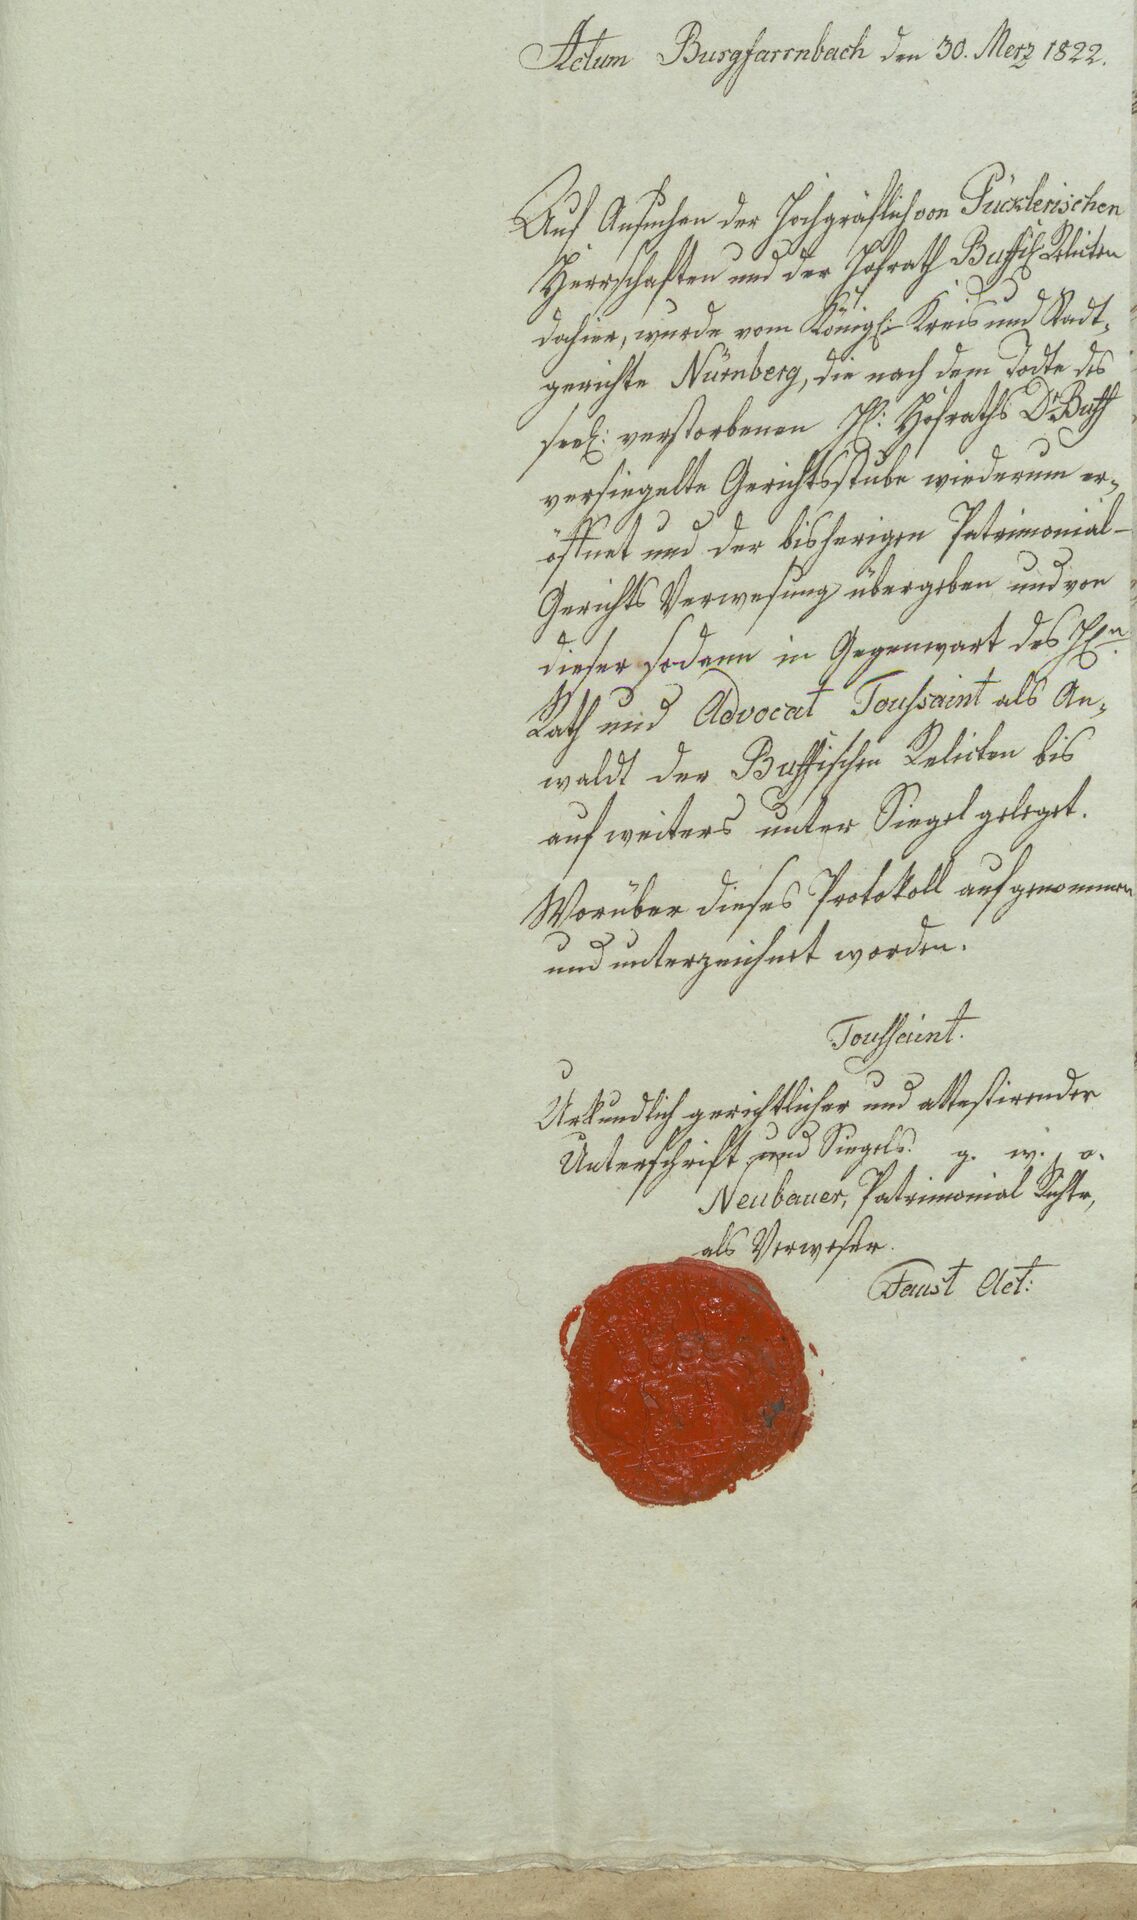 Actum Burgfarrnbach den 30. Merz 1822.
Auf Ansuchen der Hochgräflich von Pücklerischen
Herrschaften und der Hofrath Buffisch Relicten
dahier, wurde vom Königl: Kreis und Stadt-
gerichte Nürnberg, die nach dem Todte des
seel: verstorbenen H: Hofraths Dr Buff
versiegelte Gerichtsstube wiederum er-
öffnet und der bisherigen Patrimonial-
Gerichts Verwesung übergeben und von
dieser sodann in Gegenwart des Hn
Rath und Advocat Toussaint als An-
waldt der Buffischen Relicten bis
auf weiters unter Siegel geleget.
Worüber dieses Protokoll aufgenommen
und unterzeichnet worden.
Toussaint.
Urkundlich gerichtlicher und attestirender
Unterschrift und Siegels. g. w. o.
Neubauer, Patrimonial Richter,
als Verweser.
Faust Act: